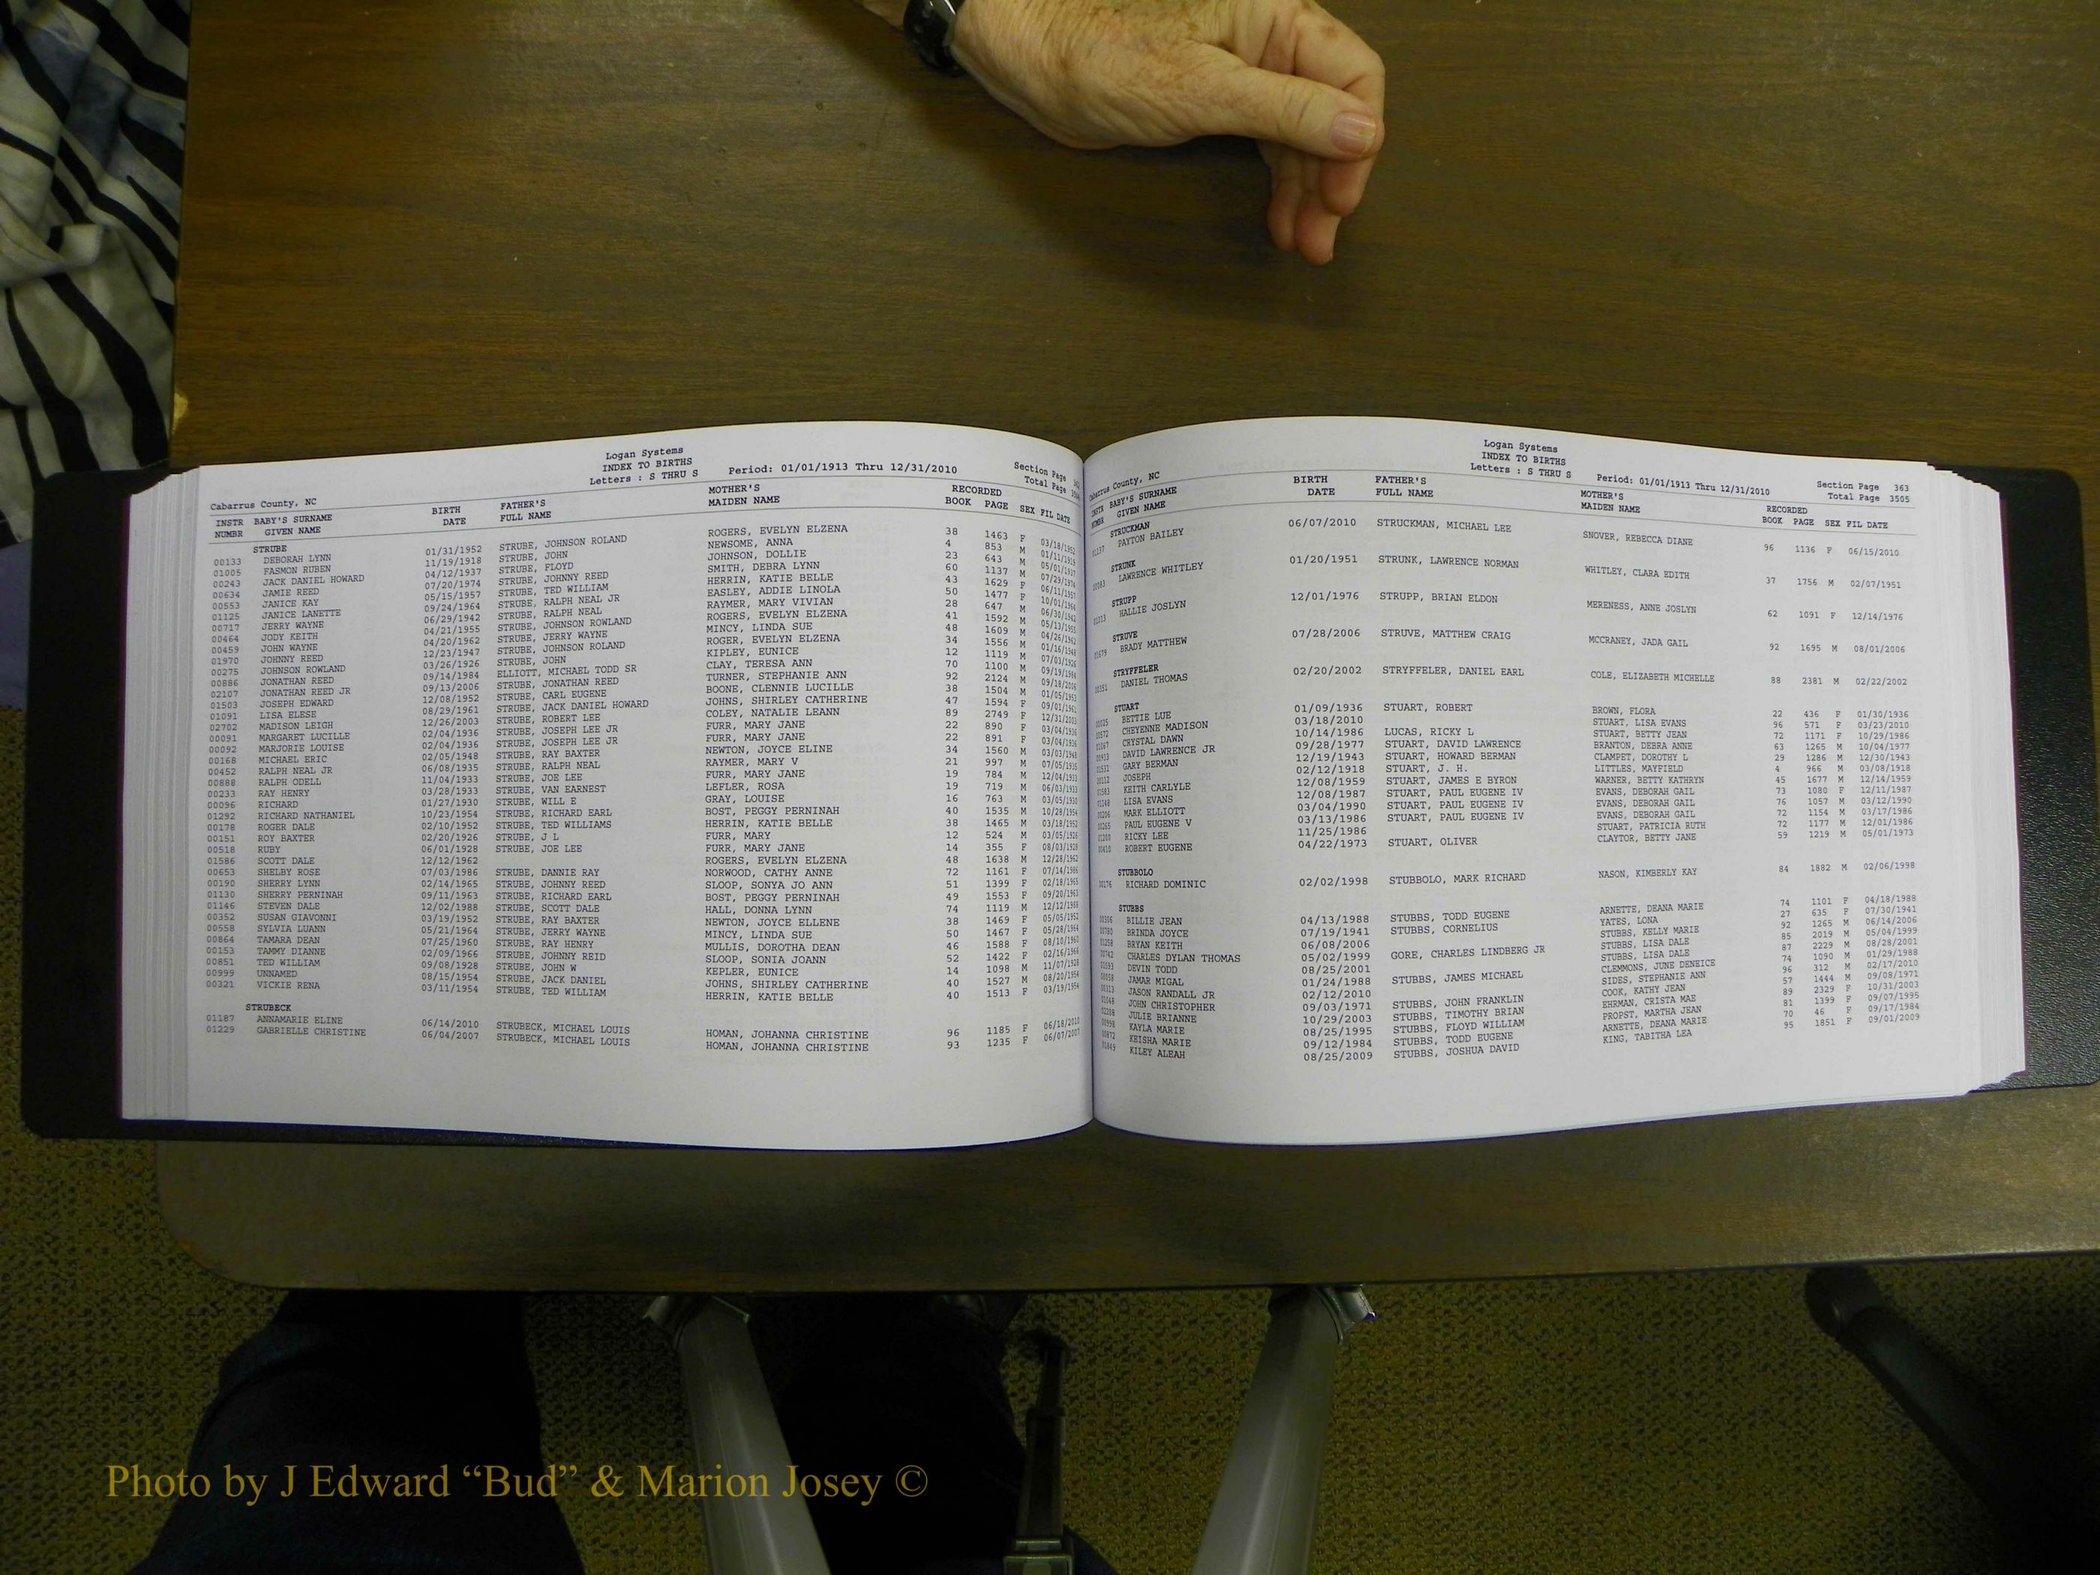 Logan Systems
INDEX TO BIRTHS
Letters : S THRU S
Period: 01/01/1913 Thru 12/31/2010
Section Page
Total Page
Cabarrus County, NC
INSTR BABY'S SURNAME BIRTH FATHER'S MOTHER'S RECORDED
NUMBR GIVEN NAME DATE FULL NAME MAIDEN NAME BOOK PAGE SEX FIL DATE
STRUBE
00133 DEBORAH LYNN 01/31/1952 STRUBE, JOHNSON ROLAND ROGERS, EVELYN ELZENA 38 1463 F 03/18/1952
01005 FASMON RUBEN 11/19/1918 STRUBE, JOHN NEWSOME, ANNA 4 853 M 01/11/1919
00243 JACK DANIEL HOWARD 04/12/1937 STRUBE, FLOYD JOHNSON, DOLLIE 23 643 M 05/01/1937
00634 JAMIE REED 07/20/1974 STRUBE, JOHNNY REED SMITH, DEBRA LYNN 60 1137 M 07/29/1974
00553 JANICE KAY 05/15/1957 STRUBE, TED WILLIAM HERRIN, KATIE BELLE 43 1629 F 06/11/1957
01125 JANICE LANETTE 09/24/1964 STRUBE, RALPH NEAL JR EASLEY, ADDIE LINOLA 50 1477 F 10/01/1964
00717 JERRY WAYNE 06/29/1942 STRUBE, RALPH NEAL RAYMER, MARY VIVIAN 28 647 M 06/30/1942
00464 JODY KEITH 04/21/1955 STRUBE, JOHNSON ROWLAND ROGERS, EVELYN ELZENA 41 1592 M 05/13/1955
00459 JOHN WAYNE 04/20/1962 STRUBE, JERRY WAYNE MINCY, LINDA SUE 48 1609 M 04/26/1962
01970 JOHNNY REED 12/23/1947 STRUBE, JOHNSON ROLAND ROGER, EVELYN ELZENA 34 1556 M 01/16/1948
00275 JOHNSON ROWLAND 03/26/1926 STRUBE, JOHN KIPLEY, EUNICE 12 1119 M 07/03/1926
00886 JONATHAN REED 09/14/1984 ELLIOTT, MICHAEL TODD SR CLAY, TERESA ANN 70 1100 M 09/19/1984
02107 JONATHAN REED JR 09/13/2006 STRUBE, JONATHAN REED TURNER, STEPHANIE ANN 92 2124 M 09/18/2006
01503 JOSEPH EDWARD 12/08/1952 STRUBE, CARL EUGENE BOONE, CLENNIE LUCILLE 38 1504 M 01/05/1953
01091 LISA ELESE 08/29/1961 STRUBE, JACK DANIEL HOWARD JOHNS, SHIRLEY CATHERINE 47 1594 F 09/01/1961
02702 MADISON LEIGH 12/26/2003 STRUBE, ROBERT LEE COLEY, NATALIE LEANN 89 2749 F 12/31/2003
00091 MARGARET LUCILLE 02/04/1936 STRUBE, JOSEPH LEE JR FURR, MARY JANE 22 890 F 03/04/1936
00092 MARJORIE LOUISE 02/04/1936 STRUBE, JOSEPH LEE JR FURR, MARY JANE 22 891 F 03/04/1936
00168 MICHAEL ERIC 02/05/1948 STRUBE, RAY BAXTER NEWTON, JOYCE ELINE 34 1560 M 03/03/1948
00452 RALPH NEAL JR 06/08/1935 STRUBE, RALPH NEAL RAYMER, MARY V 21 997 M 07/05/1935
00888 RALPH ODELL 11/04/1933 STRUBE, JOE LEE FURR, MARY JANE 19 784 M 12/04/1933
00233 RAY HENRY 03/28/1933 STRUBE, VAN EARNEST LEFLER, ROSA 19 719 M 06/03/1933
00096 RICHARD 01/27/1930 STRUBE, WILL E GRAY, LOUISE 16 763 M 03/05/1930
01292 RICHARD NATHANIEL 10/23/1954 STRUBE, RICHARD EARL BOST, PEGGY PERNINAH 40 1535 M 10/28/1954
00178 ROGER DALE 02/10/1952 STRUBE, TED WILLIAMS HERRIN, KATIE BELLE 38 1465 M 03/18/1952
00151 ROY BAXTER 02/20/1926 STRUBE, J L FURR, MARY 12 524 M 03/05/1926
00518 RUBY 06/01/1928 STRUBE, JOE LEE FURR, MARY JANE 14 355 F 08/03/1928
01586 SCOTT DALE 12/12/1962 ROGERS, EVELYN ELZENA 48 1638 M 12/28/1962
00653 SHELBY ROSE 07/03/1986 STRUBE, DANNIE RAY NORWOOD, CATHY ANNE 72 1161 F 07/14/1986
00190 SHERRY LYNN 02/14/1965 STRUBE, JOHNNY REED SLOOP, SONYA JO ANN 51 1399 F 02/18/1965
01130 SHERRY PERNINAH 09/11/1963 STRUBE, RICHARD EARL BOST, PEGGY PERNINAH 49 1553 F 09/20/1963
01146 STEVEN DALE 12/02/1988 STRUBE, SCOTT DALE HALL, DONNA LYNN 74 1119 M 12/12/1988
00352 SUSAN GIAVONNI 03/19/1952 STRUBE, RAY BAXTER NEWTON, JOYCE ELLENE 38 1469 F 05/05/1952
00558 SYLVIA LUANN 05/21/1964 STRUBE, JERRY WAYNE MINCY, LINDA SUE 50 1467 F 05/28/1964
00864 TAMARA DEAN 07/25/1960 STRUBE, RAY HENRY MULLIS, DOROTHA DEAN 46 1588 F 08/10/1960
00153 TAMMY DIANNE 02/09/1966 STRUBE, JOHNNY REID SLOOP, SONIA JOANN 52 1422 F 02/16/1966
00851 TED WILLIAM 09/08/1928 STRUBE, JOHN W KEPLER, EUNICE 14 1098 M 11/07/1928
00999 UNNAMED 08/15/1954 STRUBE, JACK DANIEL JOHNS, SHIRLEY CATHERINE 40 1527 M 08/20/1954
00321 VICKIE RENA 03/11/1954 STRUBE, TED WILLIAM HERRIN, KATIE BELLE 40 1513 F 03/19/1954
STRUBECK
01187 ANNAMARIE ELINE 06/14/2010 STRUBECK, MICHAEL LOUIS HOMAN, JOHANNA CHRISTINE 96 1185 F 06/18/2010
01229 GABRIELLE CHRISTINE 06/04/2007 STRUBECK, MICHAEL LOUIS HOMAN, JOHANNA CHRISTINE 93 1235 F 06/07/2007
Logan Systems
INDEX TO BIRTHS
Letters : S THRU S
Period: 01/01/1913 Thru 12/31/2010
Section Page 363
Total Page 3505
Cabarrus County, NC
INSTR BABY'S SURNAME BIRTH FATHER'S MOTHER'S RECORDED
NUMBR GIVEN NAME DATE FULL NAME MAIDEN NAME BOOK PAGE SEX FIL DATE
STRUCKMAN
01137 PAYTON BAILEY 06/07/2010 STRUCKMAN, MICHAEL LEE SNOVER, REBECCA DIANE 96 1136 F 06/15/2010
STRUNK
LAWRENCE WHITLEY 01/20/1951 STRUNK, LAWRENCE NORMAN WHITLEY, CLARA EDITH 37 1756 M 02/07/1951
STRUPP
01313 HALLIE JOSLYN 12/01/1976 STRUPP, BRIAN ELDON MERENESS, ANNE JOSLYN 62 1091 F 12/14/1976
STRUVE
01679 BRADY MATTHEW 07/28/2006 STRUVE, MATTHEW CRAIG MCCRANEY, JADA GAIL 92 1695 M 08/01/2006
STRYFFELER
00351 DANIEL THOMAS 02/20/2002 STRYFFELER, DANIEL EARL COLE, ELIZABETH MICHELLE 88 2381 M 02/22/2002
STUART
BETTIE LUE 01/09/1936 STUART, ROBERT BROWN, FLORA 22 436 F 01/30/1936
00572 CHEYENNE MADISON 03/18/2010 STUART, LISA EVANS 96 571 F 03/23/2010
CRYSTAL DAWN 10/14/1986 LUCAS, RICKY L STUART, BETTY JEAN 72 1171 F 10/29/1986
00913 DAVID LAWRENCE JR 09/28/1977 STUART, DAVID LAWRENCE BRANTON, DEBRA ANNE 63 1265 M 10/04/1977
01531 GARY BERMAN 12/19/1943 STUART, HOWARD BERMAN CLAMPET, DOROTHY L 29 1286 M 12/30/1943
00112 JOSEPH 02/12/1918 STUART, J. H. LITTLES, MAYFIELD 4 966 M 03/08/1918
01583 KEITH CARLYLE 12/08/1959 STUART, JAMES E BYRON WARNER, BETTY KATHRYN 45 1677 M 12/14/1959
LISA EVANS 12/08/1987 STUART, PAUL EUGENE IV EVANS, DEBORAH GAIL 73 1080 F 12/11/1987
MARK ELLIOTT 03/04/1990 STUART, PAUL EUGENE IV EVANS, DEBORAH GAIL 76 1057 M 03/12/1990
00265 PAUL EUGENE V 03/13/1986 STUART, PAUL EUGENE IV EVANS, DEBORAH GAIL 72 1154 M 03/17/1986
RICKY LEE 11/25/1986 STUART, PATRICIA RUTH 72 1177 M 12/01/1986
00410 ROBERT EUGENE 04/22/1973 STUART, OLIVER CLAYTOR, BETTY JANE 59 1219 M 05/01/1973
STUBBOLO
00176 RICHARD DOMINIC 02/02/1998 STUBBOLO, MARK RICHARD NASON, KIMBERLY KAY 84 1882 M 02/06/1998
STUBBS
BILLIE JEAN 04/13/1988 STUBBS, TODD EUGENE ARNETTE, DEANA MARIE 74 1101 F 04/18/1988
BRINDA JOYCE 07/19/1941 STUBBS, CORNELIUS YATES, LONA 27 635 F 07/30/1941
01258 BRYAN KEITH 06/08/2006 STUBBS, KELLY MARIE 92 1265 M 06/14/2006
00742 CHARLES DYLAN THOMAS 05/02/1999 GORE, CHARLES LINDBERG JR STUBBS, LISA DALE 85 2019 M 05/04/1999
DEVIN TODD 08/25/2001 STUBBS, LISA DALE 87 2229 M 08/28/2001
JAMAR MIGAL 01/24/1988 STUBBS, JAMES MICHAEL CLEMMONS, JUNE DENEICE 74 1090 M 01/29/1988
00313 JASON RANDALL JR 02/12/2010 SIDES, STEPHANIE ANN 96 312 M 02/17/2010
JOHN CHRISTOPHER 09/03/1971 STUBBS, JOHN FRANKLIN COOK, KATHY JEAN 57 1444 M 09/08/1971
JULIE BRIANNE 10/29/2003 STUBBS, TIMOTHY BRIAN EHRMAN, CRISTA MAE 89 2329 F 10/31/2003
KAYLA MARIE 08/25/1995 STUBBS, FLOYD WILLIAM PROPST, MARTHA JEAN 81 1399 F 09/07/1995
KEISHA MARIE 09/12/1984 STUBBS, TODD EUGENE ARNETTE, DEANA MARIE 70 46 F 09/17/1984
01845 KILEY ALEAH 08/25/2009 STUBBS, JOSHUA DAVID KING, TABITHA LEA 95 1851 F 09/01/2009
Photo by J Edward “Bud” & Marion Josey ©